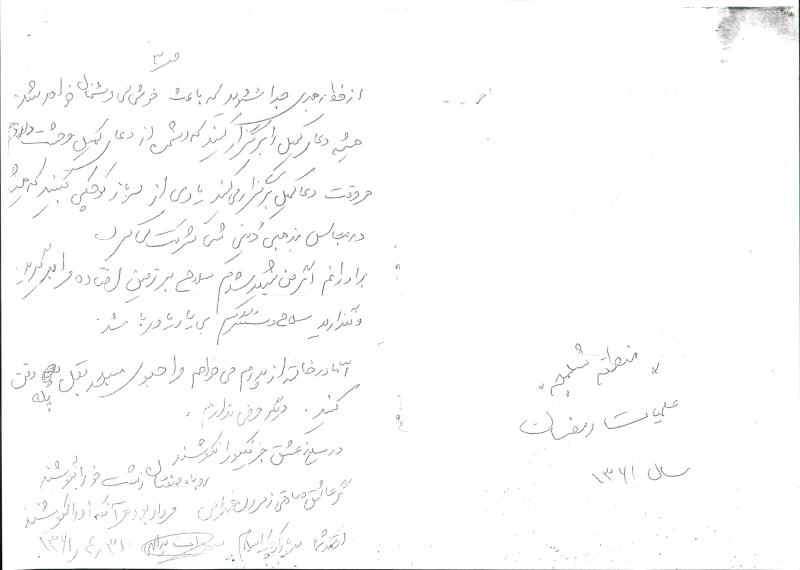 ص ۳
از خط رهبری جدا نشوید که باعث خوشحالی دشمنان خواهد شد.
همیشه دعای کمیل را برگزار کنید که دشمن از دعای کمیل وحشت دارد
هر وقت دعا کمیل برگزار می‌کنید یادی از سرباز کوچکی کنید که همیشه
در مجالس مذهبی و دینی شرکت می کرد
برادرانم اگر من شهید شدم سلاح بر زمین افتاده مرا برگیرید
و نگذارید سلاح
در خاتمه از پدرم می خواهم مرا جلوی مسجد دفن
کنید. دیگر عرضی ندارم.
در مسلخ عشق جز نکو را نکشند
روباه صفتان زشت خو را نکشند
گر عاشق صادقی ز مردن مهراس
مردار بود هر آنکه او را نکشند
۱۳۶۱
منطقه شلمچه
عملیات رمضان
سال ۱۳۶۱